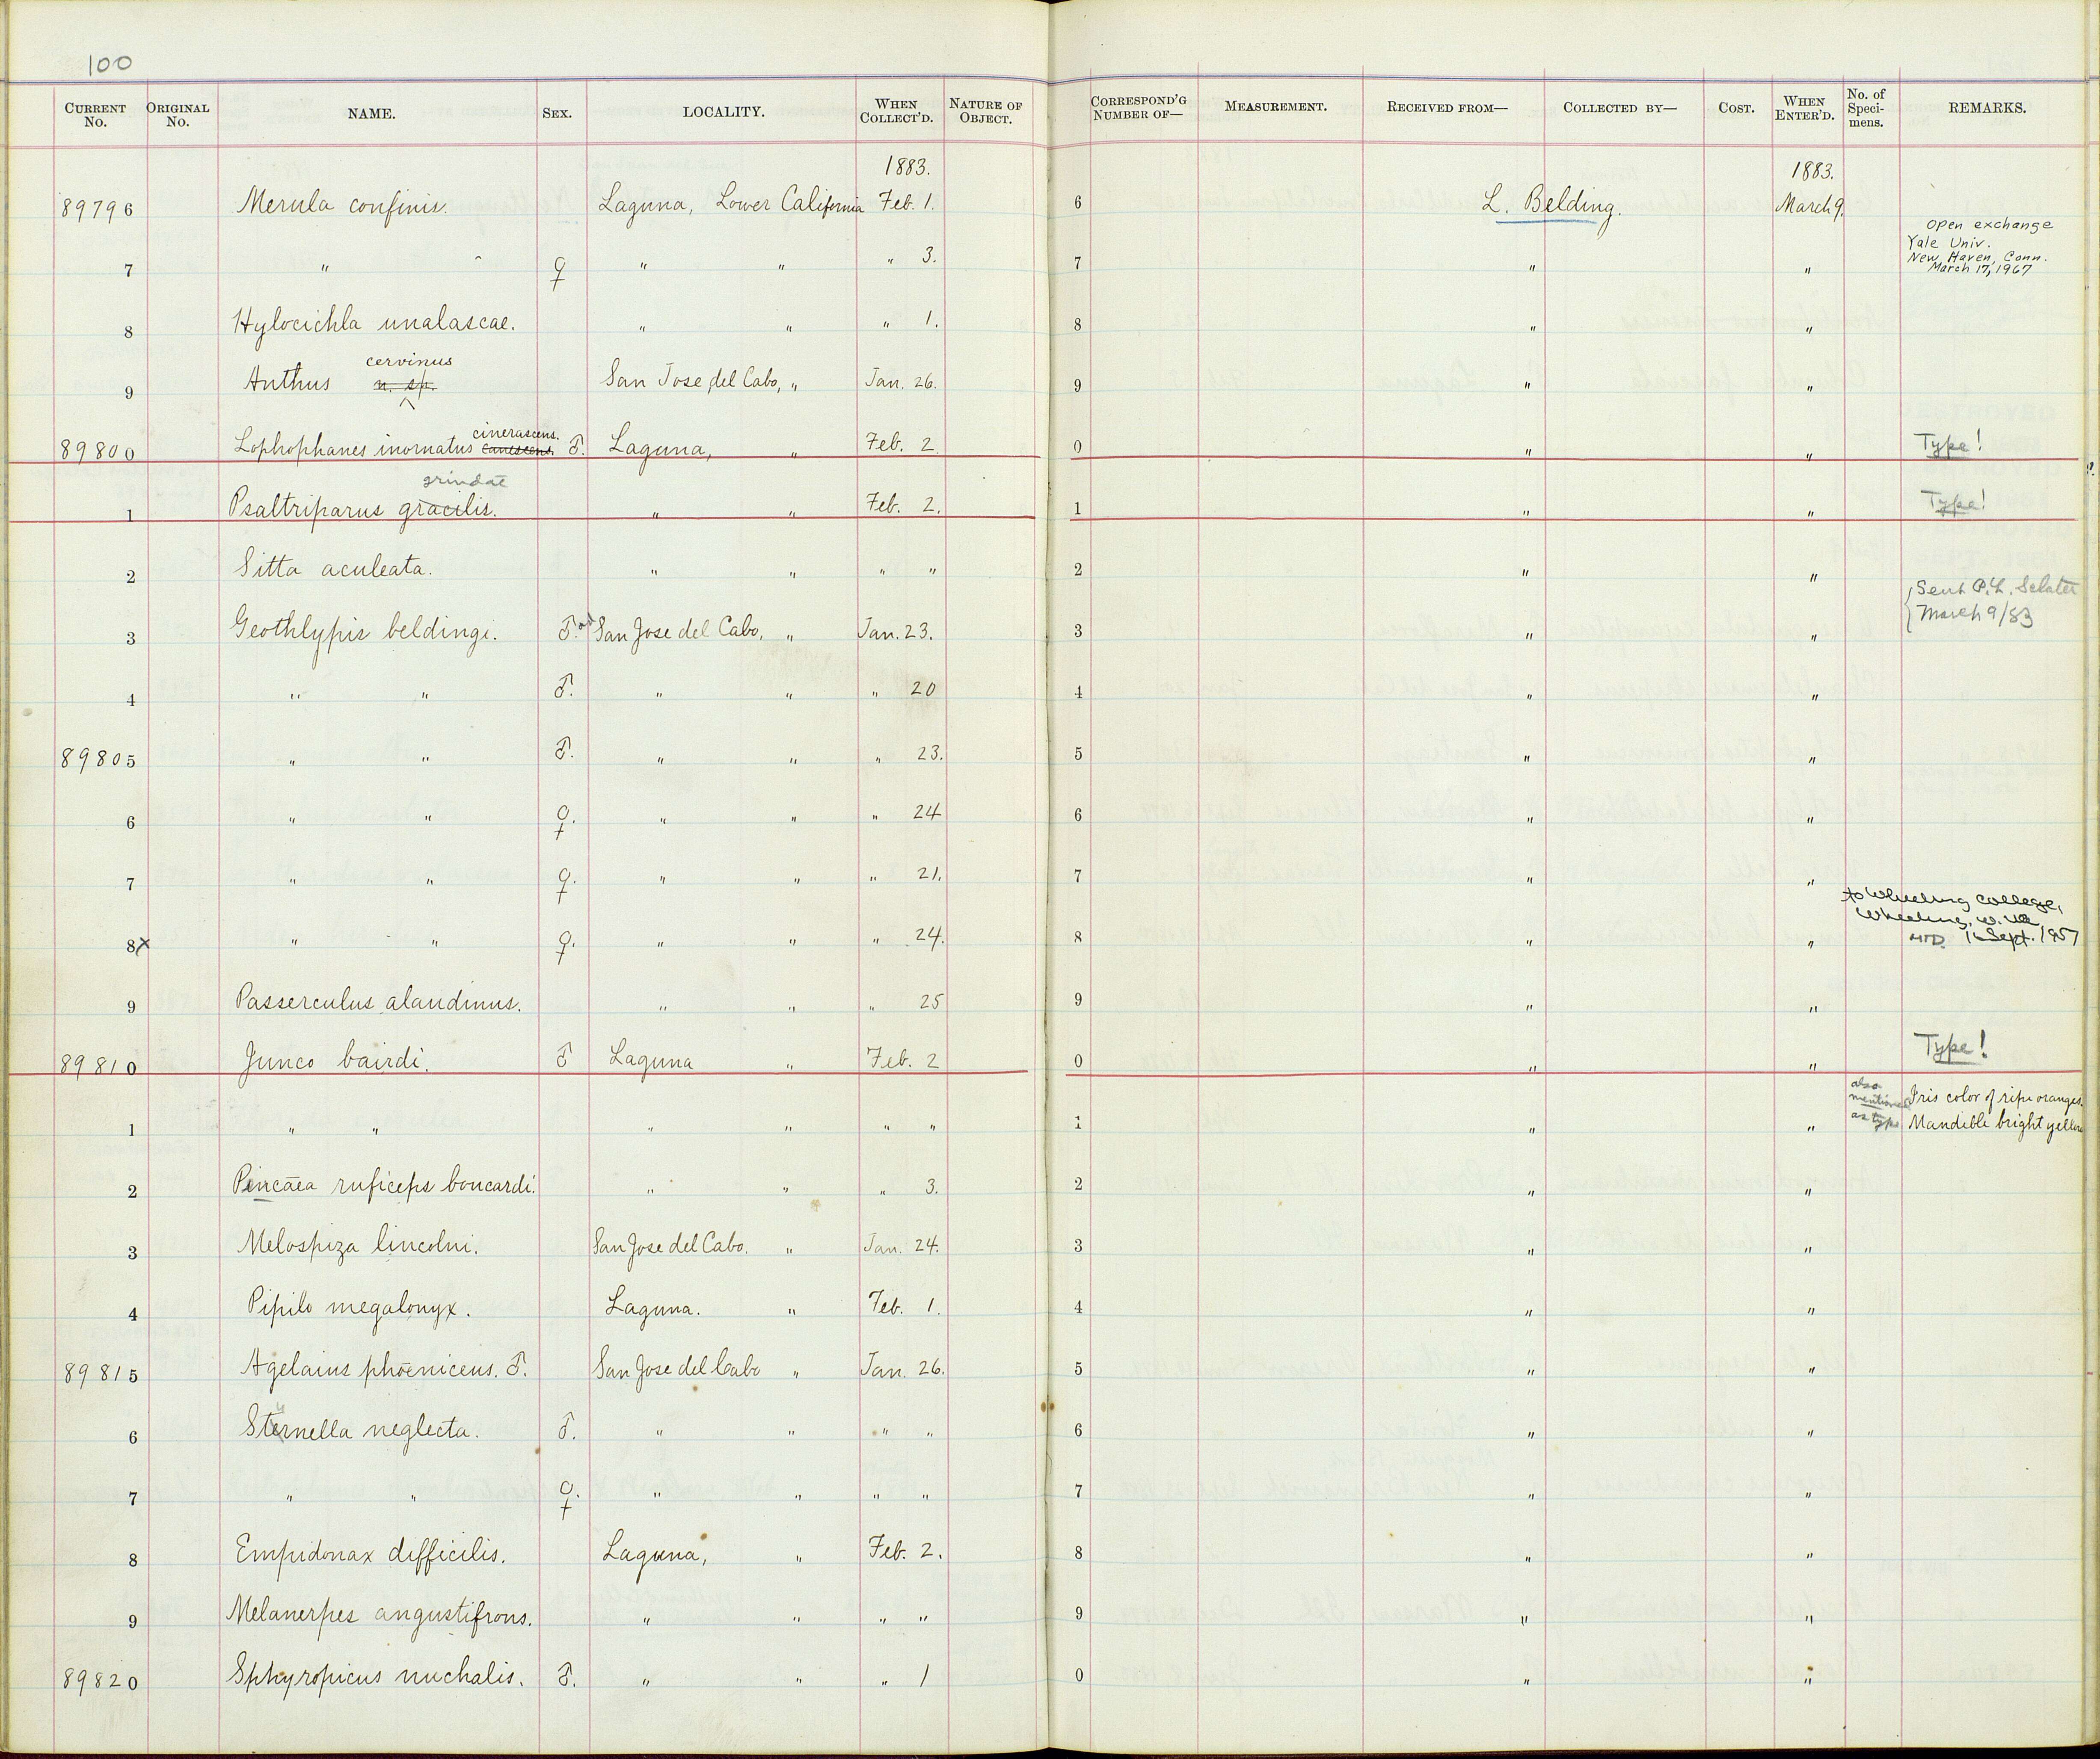 100
CURRENT No. ORIGINAL No. NAME. SEX. LOCALITY. WHEN COLLECT'D. NATURE OF OBJECT. CORRESPOND'G NUMBER OF— MEASUREMENT. RECEIVED FROM— COLLECTED BY— COST. WHEN ENTER'D. No. of Speci-mens. REMARKS.
1883. 1883.
89796 Merula confinis. Laguna, Lower California Feb. 1. 6 L. Belding. March 9.
7 " " ♀ " " " 3. 7 " " Open exchange
Yale Univ.
New Haven, Conn.
March 17, 1967
8 Hylocichla unalascae. " " " 1. 8 " "
cervinus
9 Anthus n. sp. San Jose del Cabo, " Jan. 26. 9 " "
cinerascens.
89800 Lophophanes inornatus canescens. ♂. Laguna, " Feb. 2 0 " " Type!
grindae
1 Psaltriparus gracilis. " " Feb. 2. 1 " " Type!
2 Sitta aculeata. " " " " 2 " "
3 Geothlypis beldingi. ♂. ad San Jose del Cabo, " Jan. 23. 3 " " Sent P. L. Sclater
March 9/83
4 " " ♂. " " " 20 4 " "
89805 " " ♂. " " " 23. 5 " "
6 " " ♀. " " " 24 6 " "
7 " " ♀. " " " 21. 7 " "
to Wheeling College,
Wheeling, W. Va
8x " " ♀. " " " 24. 8 " " HTD. 16 Sept. 1957
9 Passerculus alaudinus. " " " 25 9 " "
89810 Junco bairdi. ♂ Laguna " Feb. 2 0 " " Type!
1 " " " " " " 1 " " also mentioned as type Iris color of ripe oranges.
Mandible bright yellow
2 Peucaea ruficeps boucardi. " " " 3. 2 " "
3 Melospiza lincolni. San Jose del Cabo. " Jan. 24. 3 " "
4 Pipilo megalonyx. Laguna. " Feb. 1. 4 " "
89815 Agelaius phoeniceus. ♂. San Jose del Cabo " Jan. 26. 5 " "
6 Sturnella neglecta. ♂. " " " " 6 " "
7 " " ♀. " " " " 7 " "
8 Empidonax difficilis. Laguna, " Feb. 2. 8 " "
9 Melanerpes angustifrons. " " " " 9 " "
89820 Sphyropicus nuchalis. ♂. " " " 1 0 " "